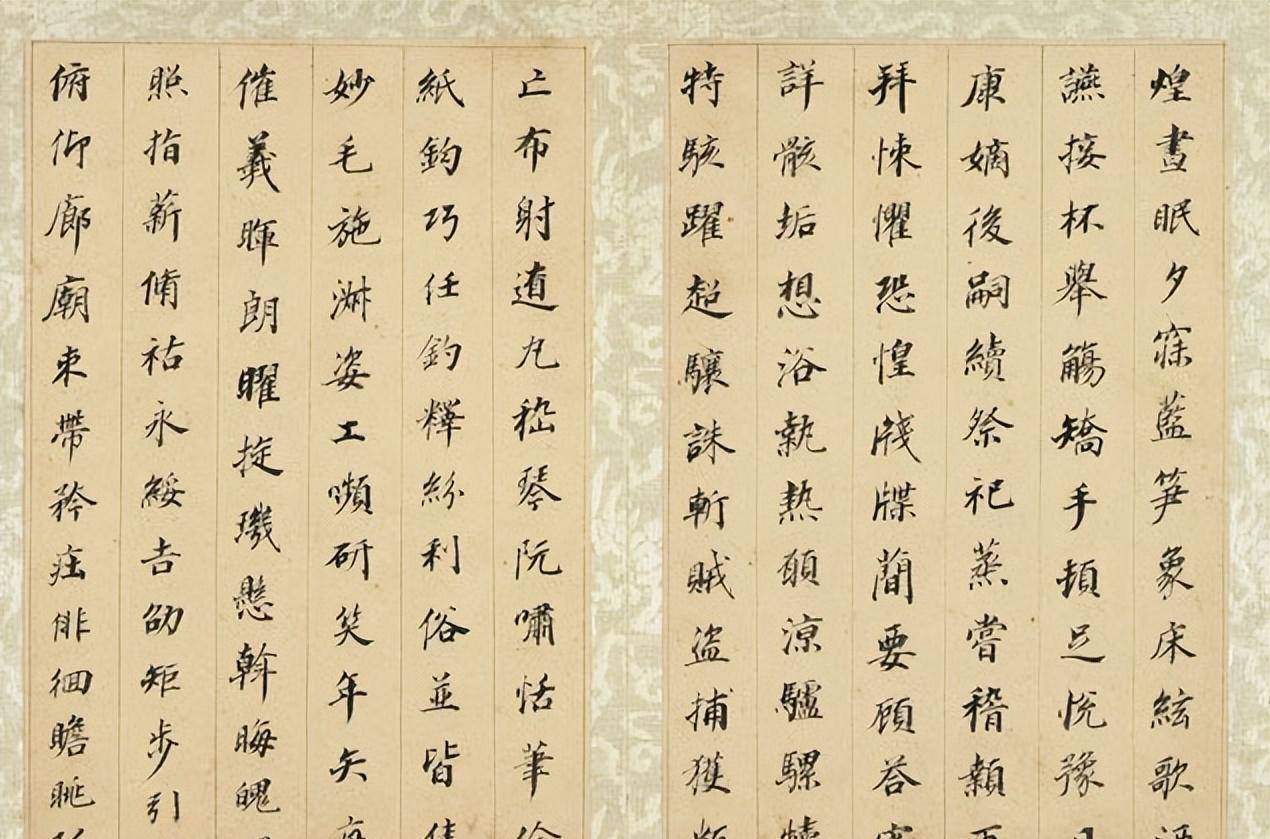 煌晝眠夕寐藍笋象床絃歌
讌接杯舉觴矯手頓足悅豫
康嫡後嗣續祭祀蒸嘗稽顙
拜悚懼恐惶牋牒簡要顧荅
詳骸垢想浴執熱願涼驢騾
特駭躍超驤誅斬賊盜捕獲
亡布射遼丸嵇琴阮嘯恬筆
紙鈞巧任釣釋紛利俗並皆
妙毛施淑姿工嚬研笑年矢
催羲暉朗曜旋璣懸斡晦魄
照指薪脩祜永綏吉劭矩步引
俯仰廊廟束帶矜莊徘徊瞻眺